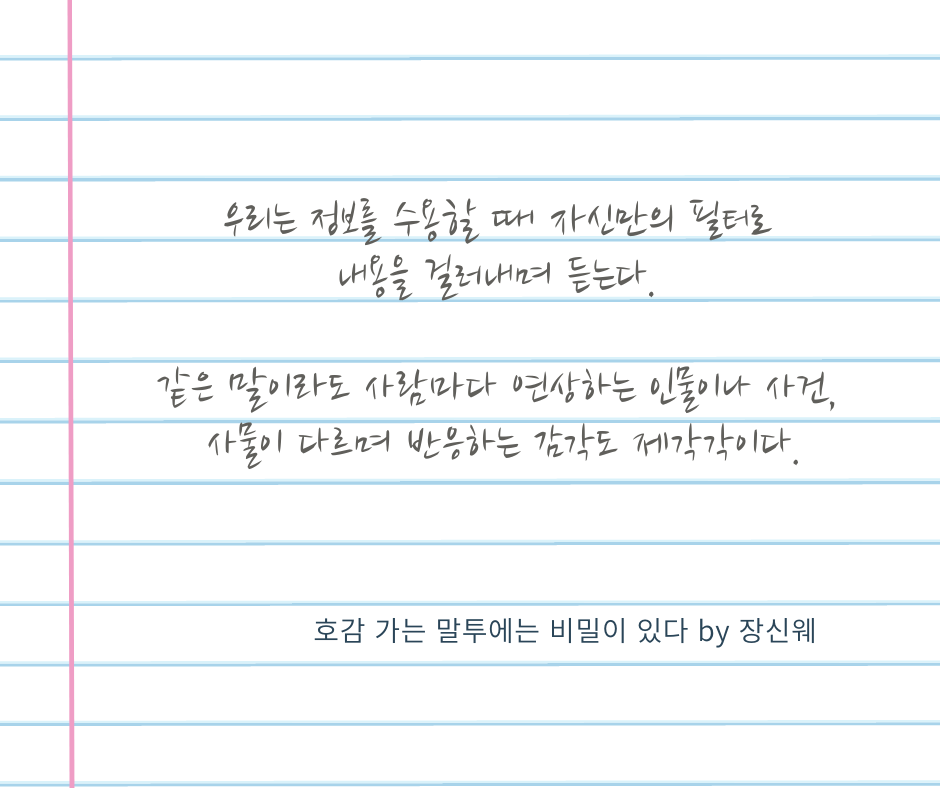 우리는 정보를 수용할 때 자신만의 필터로
내용을 걸러내며 듣는다.
같은 말이라도 사람마다 연상하는 인물이나 사건,
사물이 다르며 반응하는 감각도 제각각이다.
호감 가는 말투에는 비밀이 있다 by 장신웨